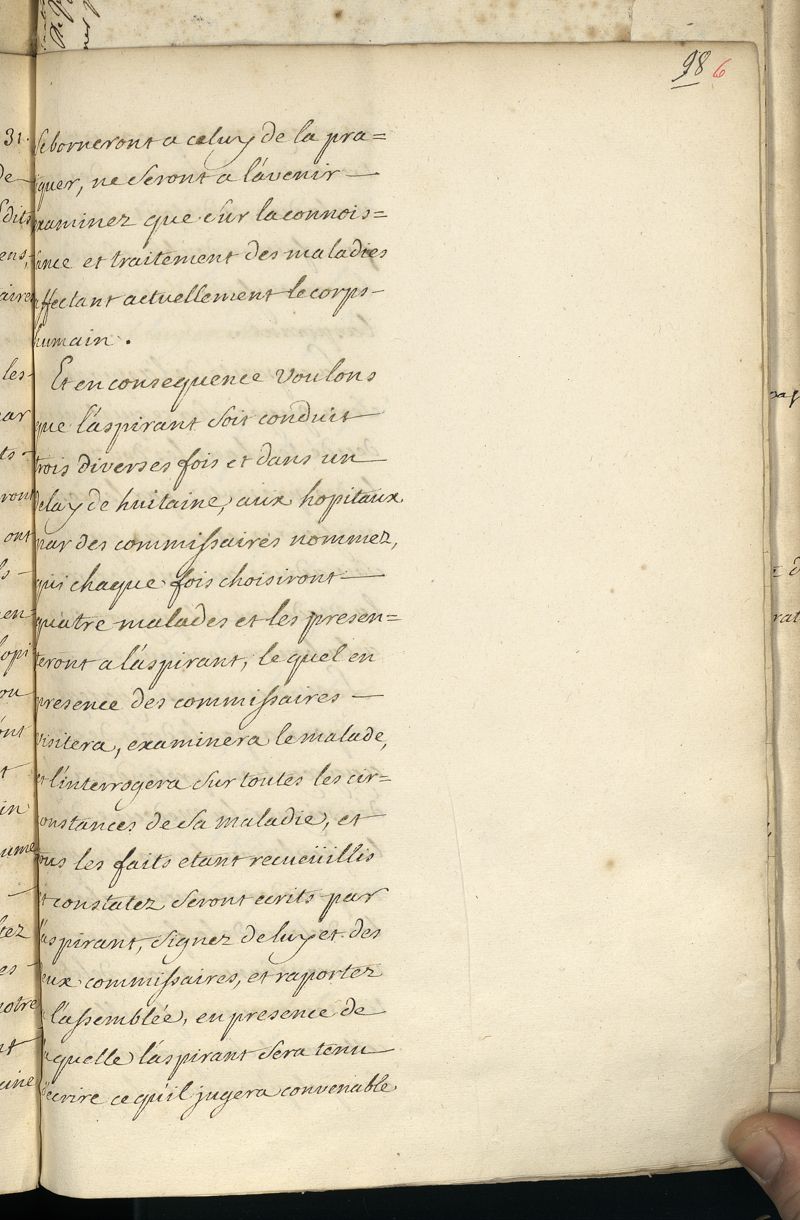 98 6
se borneront a celuy de la pra=
quer, ne seront a lávenir —
xaminez que sur la connois=
sance et traitement des maladies
affectant actuellement le corps-
humain.
Et en consequence Voulons
que láspirant soit conduit
trois diverses fois et dans un
delay de huitaine, aux hopitaux
par des commissaires nommez,
qui chaque fois choisiront —
quatre malades et les presen=
teront a láspirant, le quel en
presence des commissaires —
visitera, examinera le malade,
et l'interrogera sur toutes les cir=
constances de sa maladie, et
tous les faits etant recueïillis
et constatez seront ecrits par
láspirant, signez de luy et des
deux commissaires, et raportez
a lássemblée, en presence de
laquelle láspirant sera tenu
décrire ce quil jugera convenable